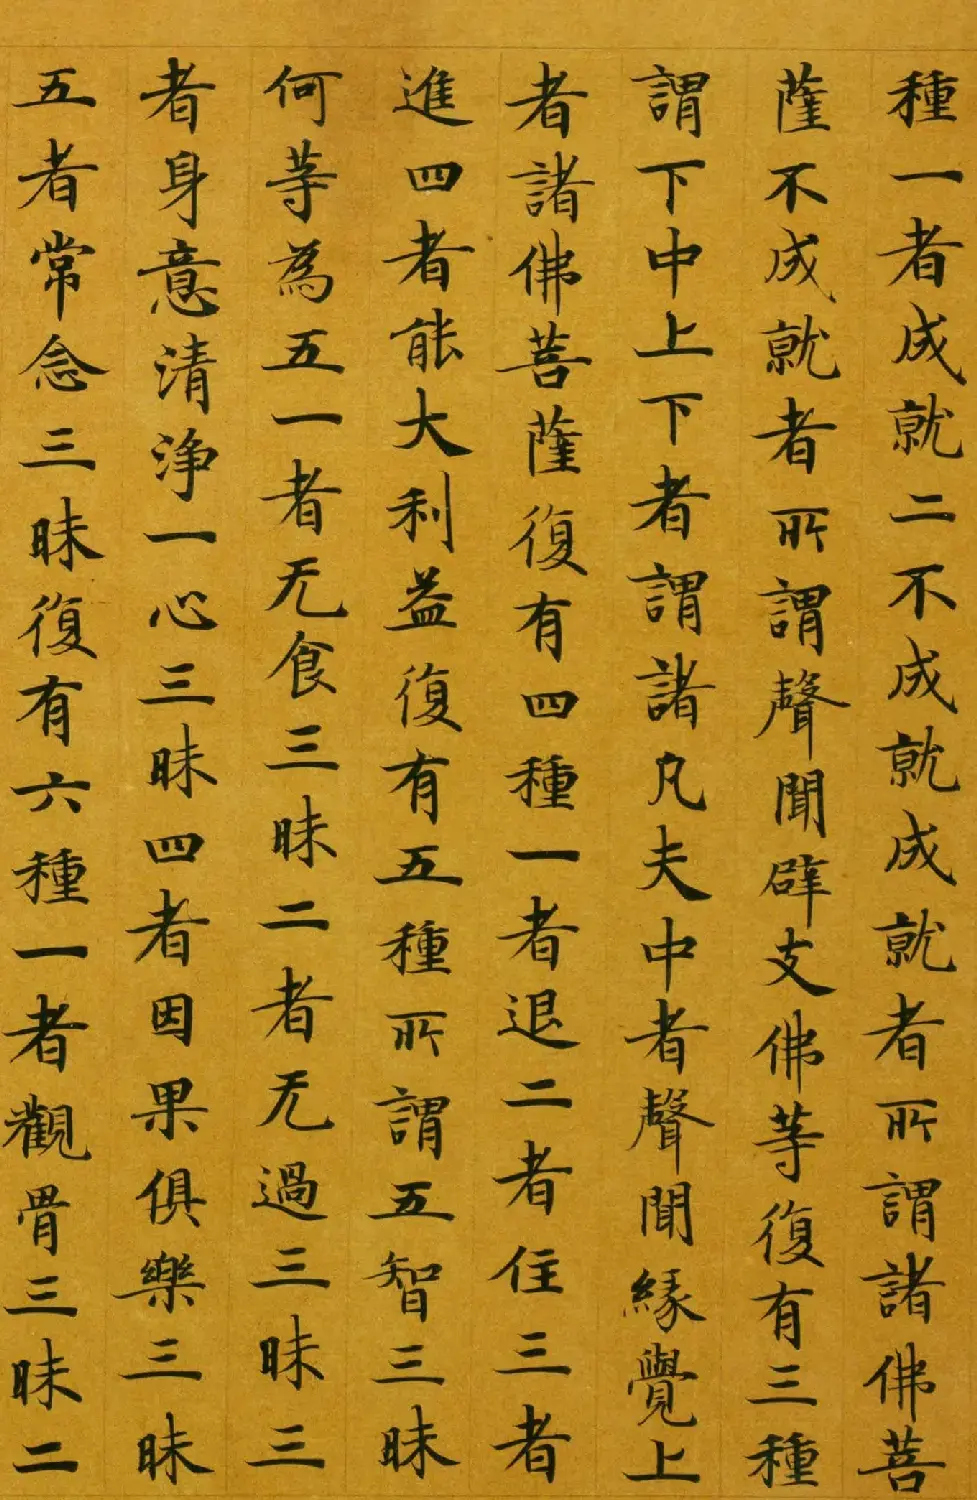 種一者成就二不成就成就者所謂諸佛菩
薩不成就者所謂聲聞辟支佛等復有三種
謂下中上下者謂諸凡夫中者聲聞緣覺上
者諸佛菩薩復有四種一者退二者住三者
進四者能大利益復有五種所謂五智三昧
何等為五一者无食三昧二者无過三昧三
者身意清淨一心三昧四者因果俱樂三昧
五者常念三昧復有六種一者觀骨三昧二